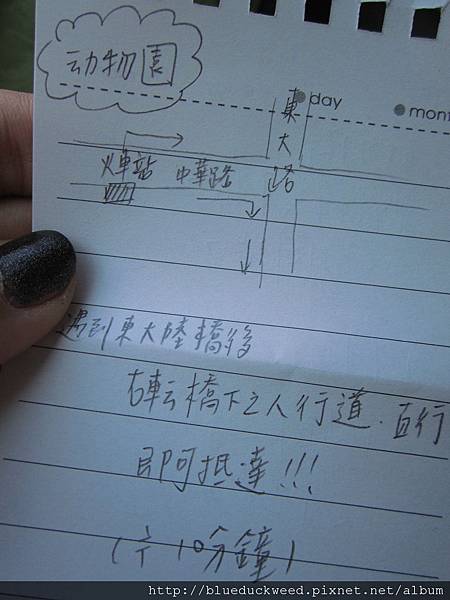 动物園
東大路
day
mont
火車站 中華路
遇到東大陸橋後
右転橋下之人行道.直行
即可抵達!!!
10分鐘)
http://blueduckweed.pixnet.net/album